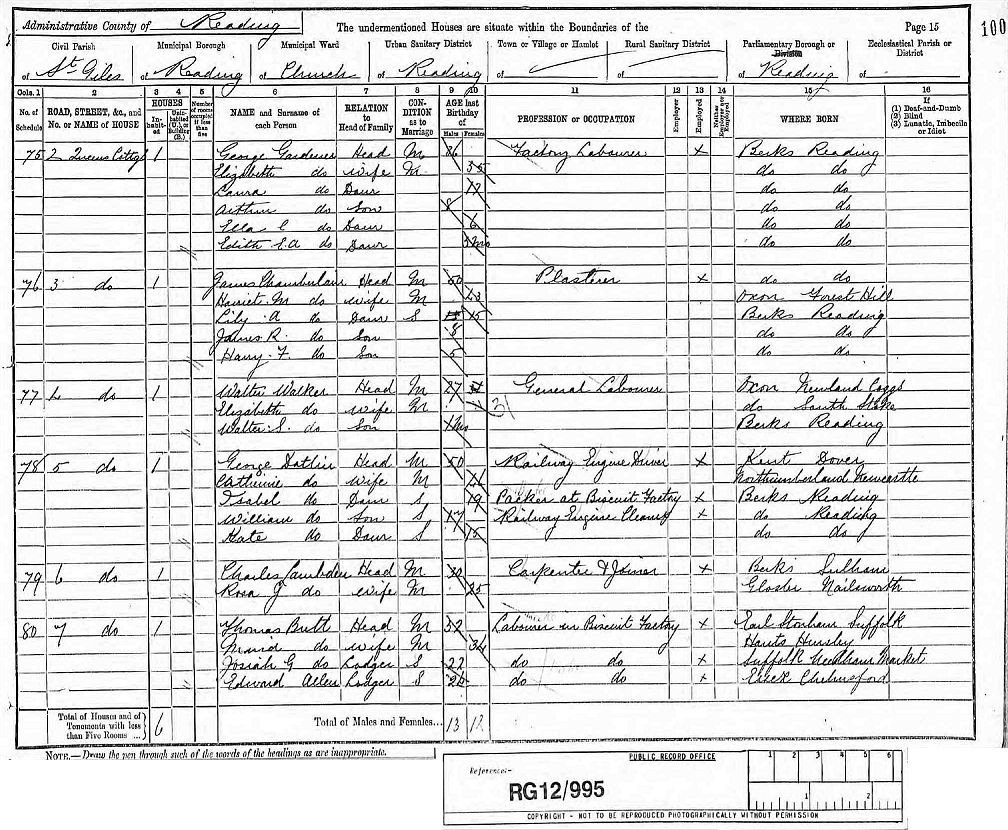 Administrative County of Reading The undermentioned Houses are situate within the Boundaries of the Page 15
100
Civil Parish Municipal Borough Municipal Ward Urban Sanitary District Town or Village or Hamlet Rural Sanitary District Parliamentary Borough or Division Ecclesiastical Parish or District
of St Giles of Reading of Church of Reading of of of Reading of
Cols. 1 2 3 4 5 6 7 8 9 10 11 12 13 14 15 16
No. of Schedule ROAD, STREET, &c., and No. or NAME of HOUSE HOUSES Inhabited Uninhabited (U.), or Building (B.) Number of rooms occupied if less than five NAME and Surname of each Person RELATION to Head of Family CONDITION as to Marriage AGE last Birthday of Males Females PROFESSION or OCCUPATION Employer Employed Neither Employer nor Employed WHERE BORN If (1) Deaf-and-Dumb (2) Blind (3) Lunatic, Imbecile or Idiot
75 2 Queens Cottgs 1 George Gardener Head M 36 Factory Labourer x Berks Reading
Elizabeth do wife M 35 do do
Laura do Daur 12 do do
Arthur do Son 8 do do
Ella C do Daur 6 do do
Edith S.A do Daur mo do do
76 3 do 1 James Chamberlain Head M 50 Plasterer x do do
Harriet M do wife M 43 Oxon Forest Hill
Lily A do Daur S 15 Berks Reading
James R. do Son 8 do do
Harry F. do Son 5 do do
77 4 do 1 Walter Walker Head M 27 General Labourer Oxon Newland Coggs
Elizabeth do wife M do South Stoke
Walter S. do Son 1 mo Berks Reading
78 5 do 1 George Datlin Head M 50 Railway Engine Driver x Kent Dover
Catherine do wife M 46 Northumberland Newcastle
Isabel do Daur S 19 Packer at Biscuit Factry x Berks Reading
William do Son S 17 Railway Engine Cleaner x do Reading
Kate do Daur S 15 do do
79 6 do 1 Charles Lambden Head M 30 Carpenter & Joiner x Berks Sulham
Rosa J do wife M 25 Gloster Nailsworth
80 7 do 1 Thomas Butt Head M 32 Labourer in Biscuit Factory x Earl Stonham Suffolk
do wife M 34 Hants Hursley
Josiah G do Lodger S 22 do do x Suffolk Needham Market
Edward Allen Lodger S 26 do do x Essex Chelmsford
Total of Houses and of Tenements with less than Five Rooms ... 6 Total of Males and Females... 13 12
NOTE.—Draw the pen through such of the words of the headings as are inappropriate.
PUBLIC RECORD OFFICE 1 2 3 4 5 6
Reference:-
RG12/995 1 2
COPYRIGHT - NOT TO BE REPRODUCED PHOTOGRAPHICALLY WITHOUT PERMISSION